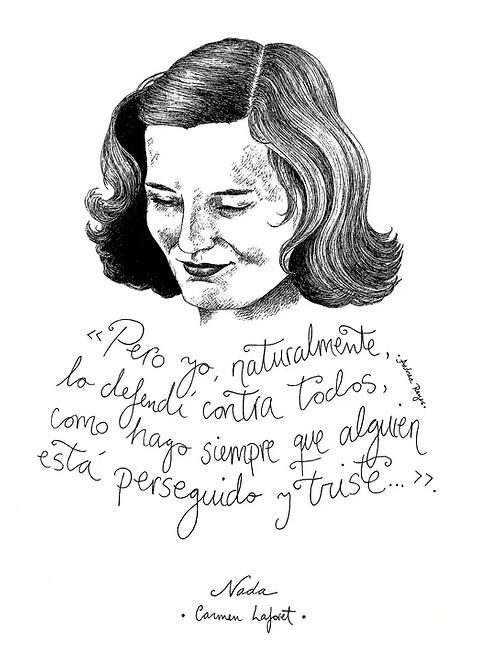 «Pero yo, naturalmente,
lo defendí contra todos,
como hago siempre que alguien
está perseguido y triste...».
Nada
• Carmen Laforet •